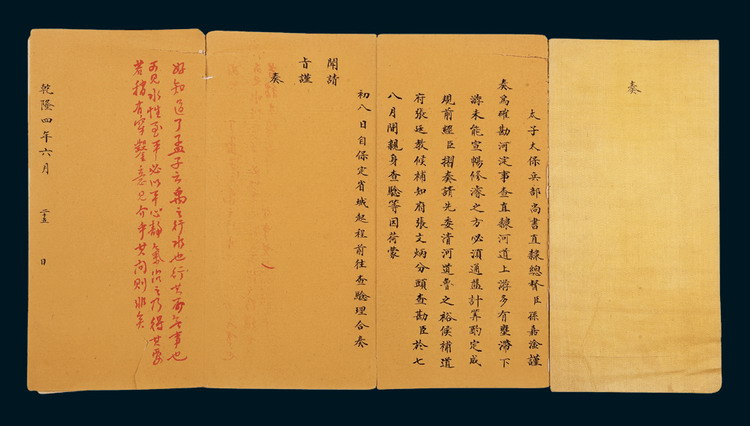 奏
太子太保兵部尚書直隸總督臣孫嘉淦謹
奏為確勘河淀事查直隸河道上游多有壅滯下
游未能宣暢修濬之方必須通盤計算酌定成
規前經臣摺奏請先委清河道魯之裕候補道
府張教候補知府張文炳分頭查勘臣於七
八月間親身查驗等因荷蒙
初八日自保定省城起程前往查驗理合奏
聞請
旨謹
奏
好知道了孟子云禹之行水也行其所無事也
可見水性至平必以平心靜氣治之乃得其要
若稍有穿鑿意見介乎其間則非矣
乾隆四年六月 二十五 日